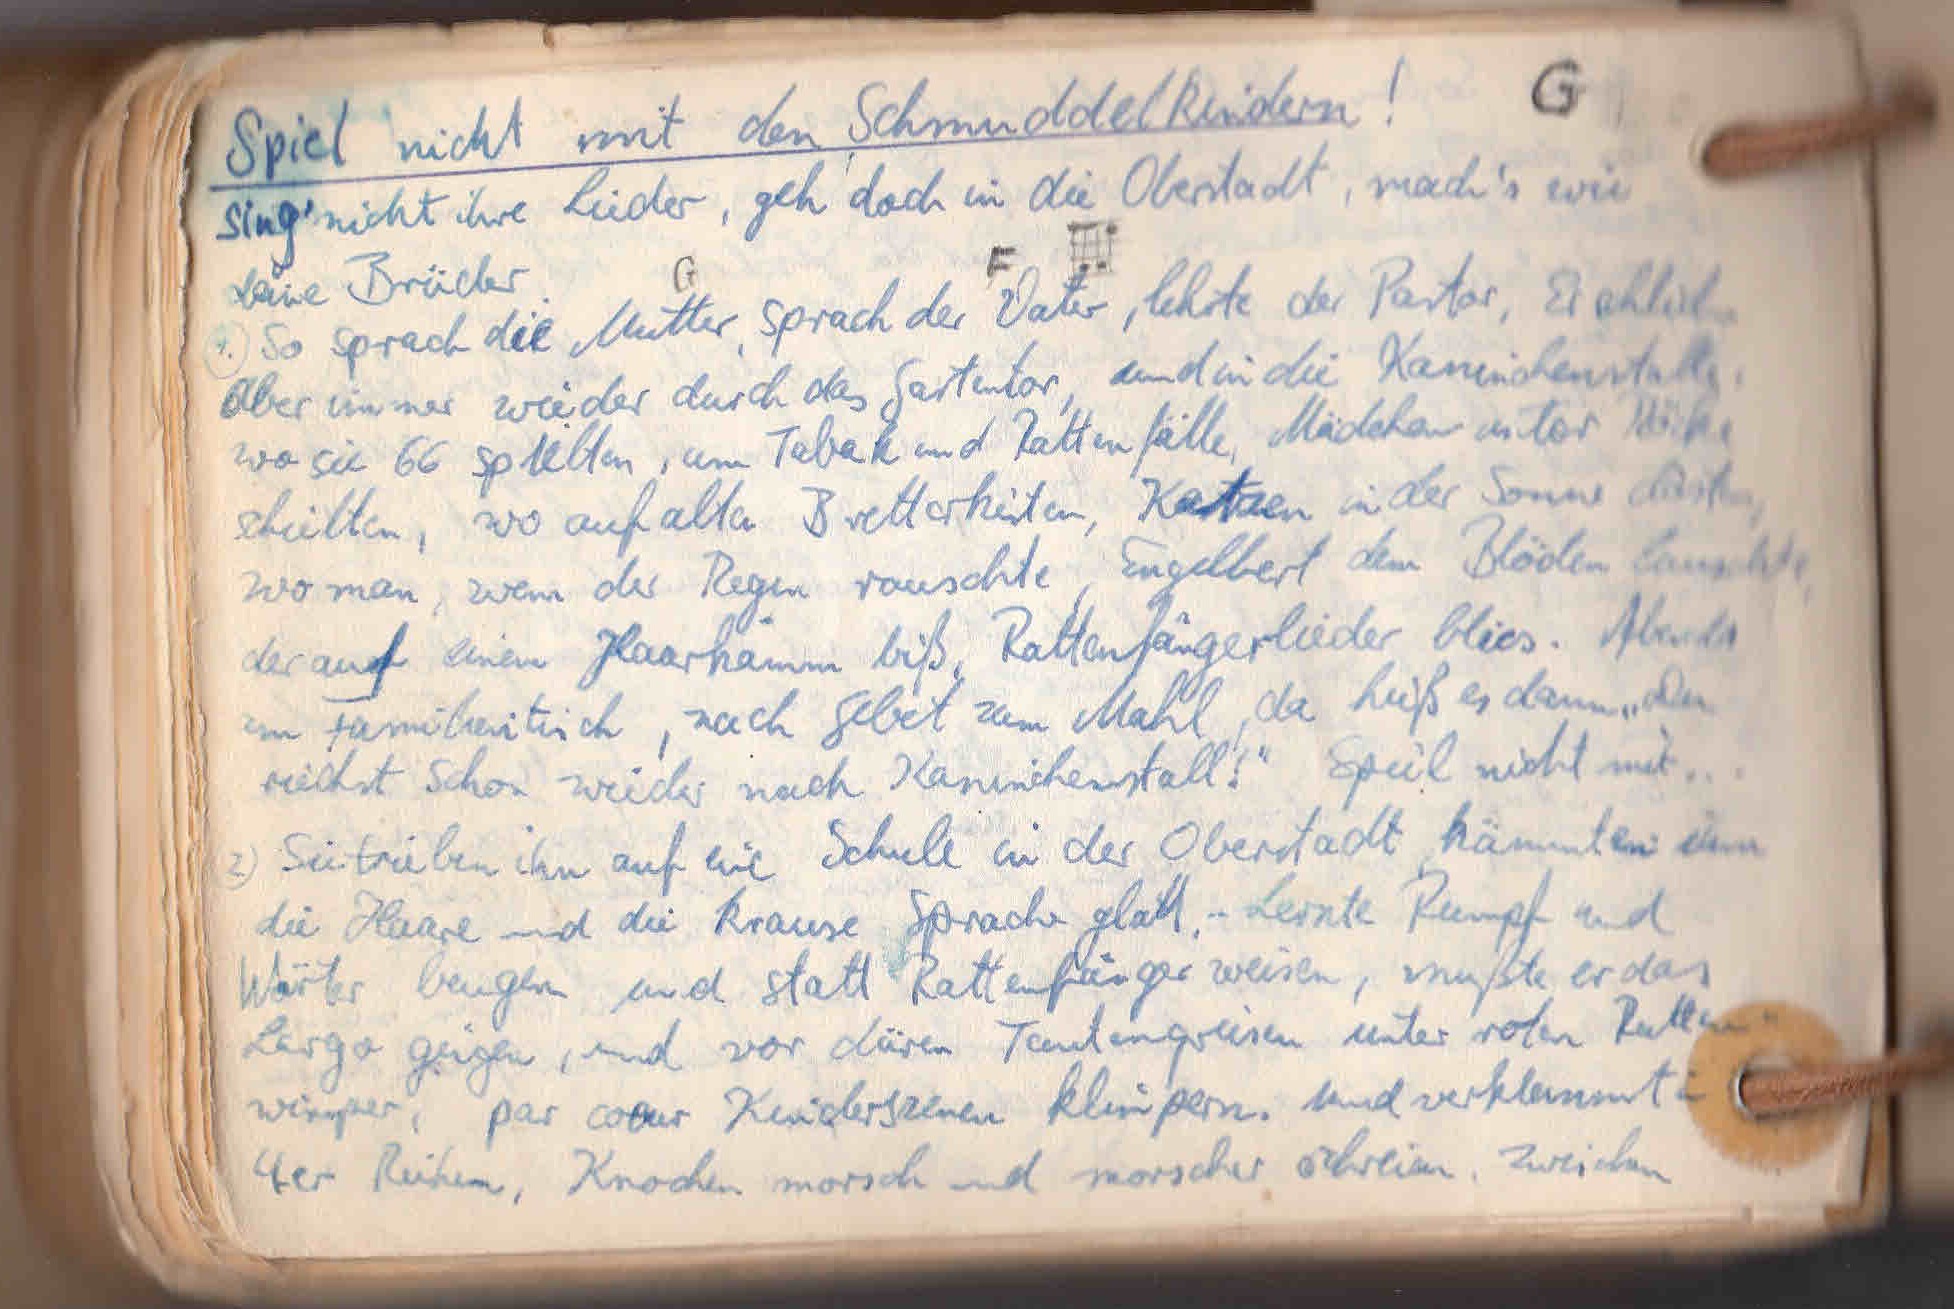 Spiel nicht mit den Schmuddelkindern! G
sing' nicht ihre Lieder, geh' doch in die Oberstadt, mach's wie
deine Brüder
G F
1.) So sprach die Mutter, sprach der Vater, lehrte der Pastor, Er schlich
aber immer wieder durch das Gartentor, und in die Kaninchenställe,
wo sie 66 spielten, um Tabak und Rattenfälle, Mädchen unter Röcke
schielten, wo auf alten Bretterkisten, Katzen in der Sonne dösten,
wo man, wenn der Regen rauschte, Engelbert dem Blöden lauschte,
der auf einen Haarkamm biß, Rattenfängerlieder blies. Abends
am Familientisch, nach Gebet zum Mahl, da hieß es dann „Du
riechst schon wieder nach Kaninchenstall!" Spiel nicht mit...
2) Sie trieben ihn auf eine Schule in der Oberstadt, kämmten ihm
die Haare und die krause Sprache glatt. Lernte Rumpf und
Wörter beugen und statt Rattenfängerweisen, mußte er das
Largo geigen, und vor dürren Tantengreisen unter roten Ratten-
wimper, par coeur Kinderszenen klimpern. Und verklemmt in
4er Reihen, Knochen morsch und morscher schreien. Zwischen